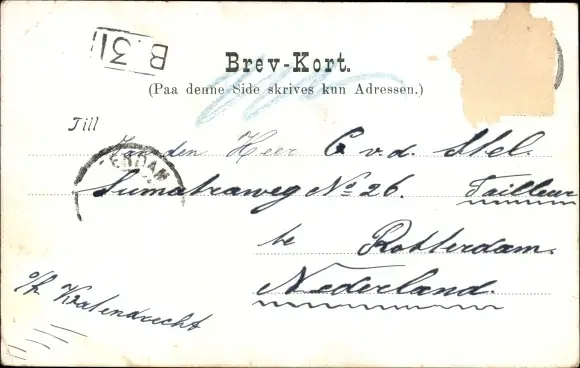 B. 31
Brev-Kort.
(Paa denne Side skrives kun Adressen.)
Till
Aan den Heer C v.d. Stel.
Sumatraweg No 26. Tailleur
te Rotterdam.
Nederland.
ERDAM
o/h Katendrecht